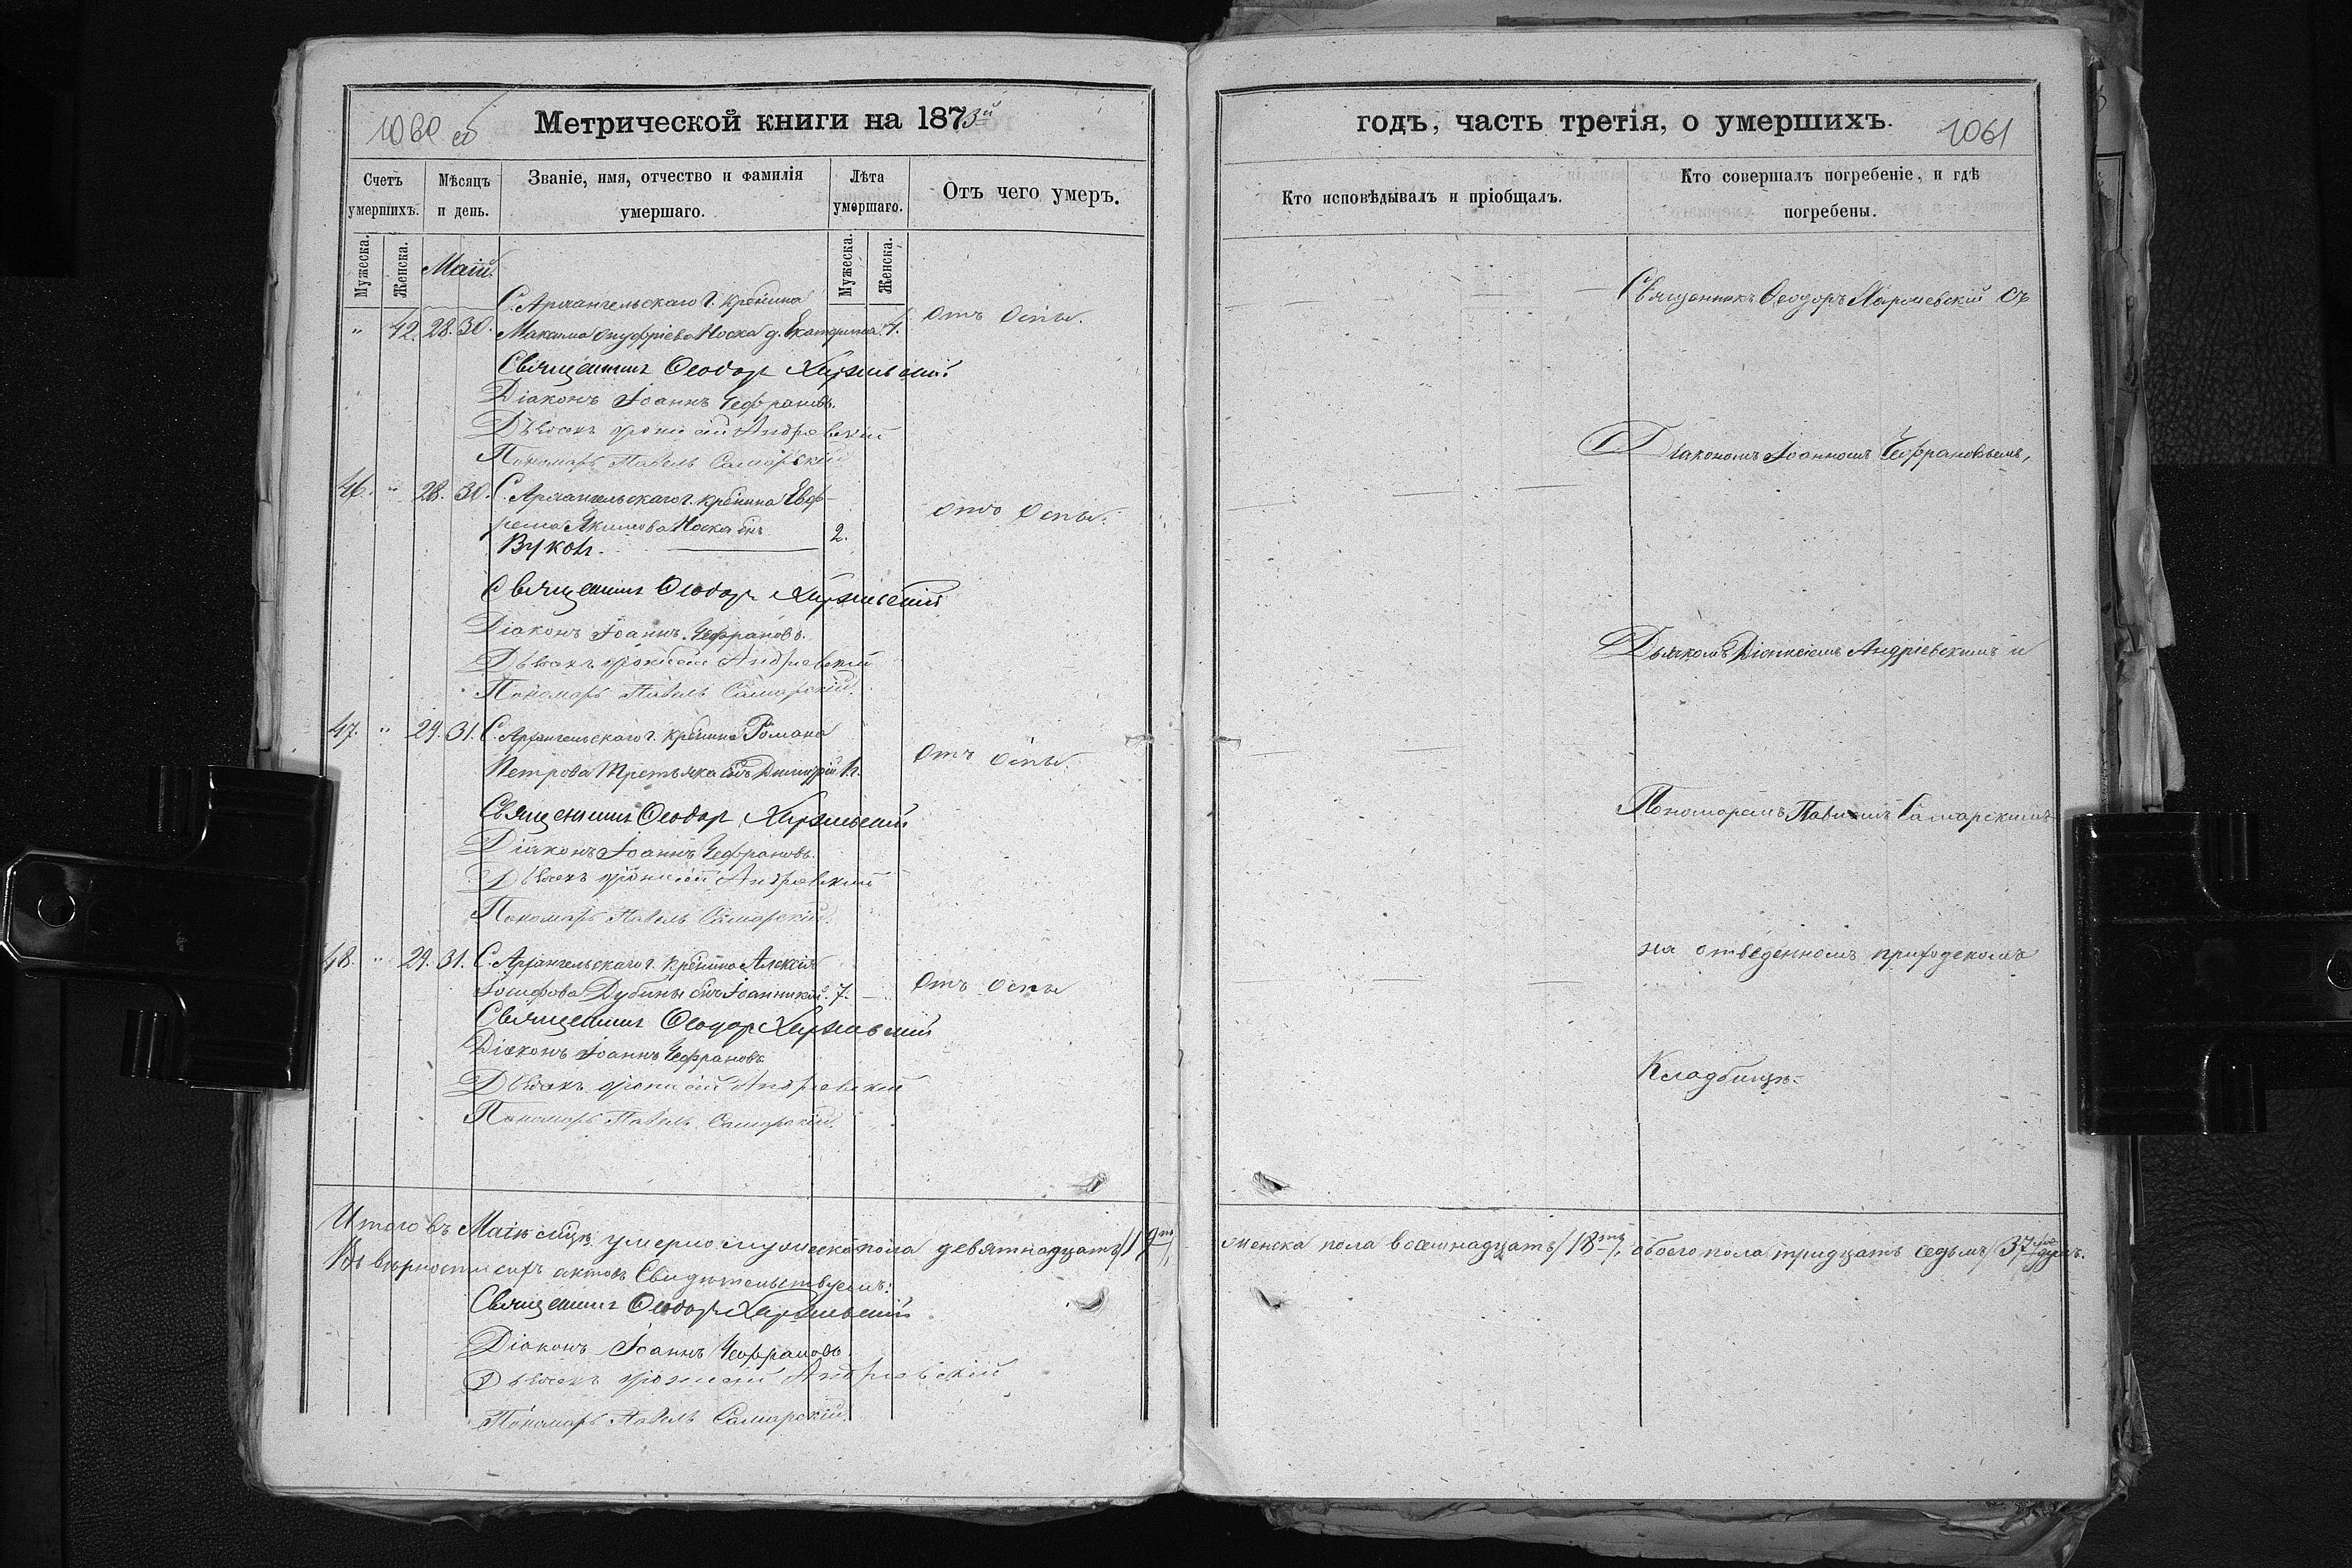 1060 об
Метрической книги на 1873й
Счетъ умершихъ.
Мѣсяцъ и день.
Званіе, имя, отчество и фамилія умершаго.
Лѣта умершаго.
Отъ чего умеръ.
Мужеска.
Женска.
Маій.
Мужеска.
Женска.
С. Архангельскаго г. крестьянина
" 42. 28. 30. Максима Онуфріева Носка д. Екатерина. 4. Отъ Оспы.
Священникъ Ѳеодоръ
Діаконъ Іоаннъ Чефрановъ.
Дьячекъ Діонисій Андріевскій
Пономарь Павелъ Самарскій
46. " 28. 30. С. Архангельскаго г. крестьянина Евф-
рема Якимова Носка сынъ 2. отъ Оспы.
Вуколъ.
Священникъ Ѳеодоръ
Діаконъ Іоаннъ Чефрановъ.
Дьячекъ Діонисій Андріевскій
Пономарь Павелъ Самарскій.
47. " 29. 31. С. Архангельскаго г. крестьянина Романа
Петрова Третьяка сынъ Димитрій Отъ Оспы.
Священникъ Ѳеодоръ
Діаконъ Іоаннъ Чефрановъ.
Дьячекъ Діонисій Андріевскій
Пономарь Павелъ Самарскій.
48. " 29. 31. С. Архангельскаго г. крестьянина Алексія
Іосифова Дубины сынъ Іоанникій. 7. Отъ оспы
Священникъ Ѳеодоръ
Діаконъ Іоаннъ Чефрановъ
Дьячекъ Діонисій Андріевскій
Пономарь Павелъ Самарскій.
Итого въ Маіѣ мѣсяцѣ умерло мужеска пола девятнадцать /19ть/,
Въ вѣрности сихъ актовъ Свидѣтельствуемъ:
Священникъ Ѳеодоръ
Діаконъ Іоаннъ Чефрановъ.
Дьячекъ Діонисій Андріевскій
Пономарь Павелъ Самарскій.
годъ, часть третія, о умершихъ.
1061
Кто исповѣдывалъ и пріобщалъ.
Кто совершалъ погребеніе, и гдѣ погребены.
Священникъ Ѳеодоръ съ
Діакономъ Іоанномъ Чефрановымъ,
Дьячкомъ Діонисіемъ Андріевскимъ и
Пономаремъ Павломъ Самарскимъ
на отведенномъ приходскомъ
Кладбищѣ.
женска пола восемнадцать /18ть/, обоего пола тридцать седьмъ /37мь/ душъ.